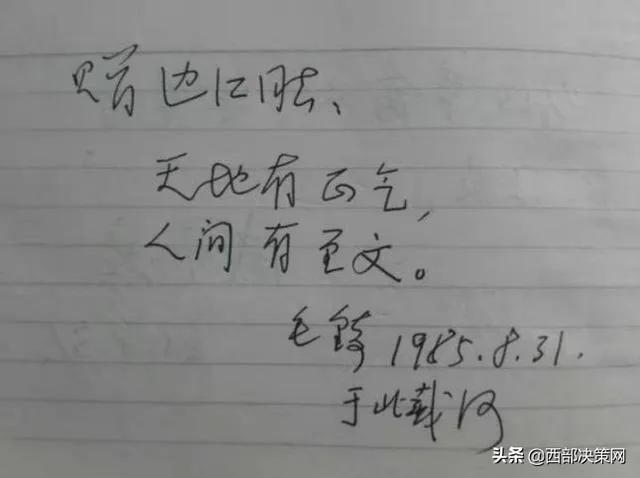 赠边江胜、
天地有正气,
人间有至文。
毛锜 1985.8.31.
于北戴河
头条 @西部决策网